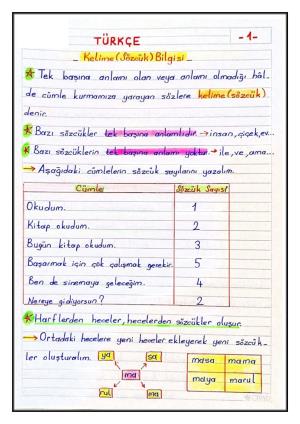 TÜRKÇE
-1-
Kelime (Sözcük) Bilgisi
Tek başına anlamı olan veya anlamı olmadığı hâl-
de cümle kurmamıza yarayan sözlere kelime (sözcük)
denir.
Bazı sözcükler tek başına anlamlıdır. → insan, çiçek, ev...
Bazı sözcüklerin tek başına anlamı yoktur. → ile, ve, ama...
→ Aşağıdaki cümlelerin sözcük sayılarını yazalım.
Cümle Sözcük Sayısı
Okudum. 1
Kitap okudum. 2
Bugün kitap okudum. 3
Başarmak için çok çalışmak gerekir. 5
Ben de sinemaya geleceğim. 4
Nereye gidiyorsun? 2
Harflerden heceler, hecelerden sözcükler oluşur.
→ Ortadaki hecelere yeni heceler ekleyerek yeni sözcük-
ler oluşturalım.
ya sa
ma
rul ma
masa mama
maya marul